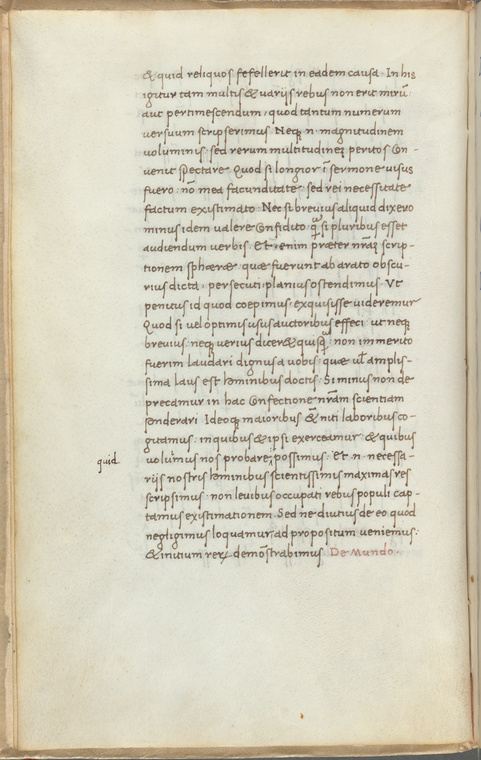 & quid reliquos fefellerit in eadem causa. In his
igitur tam multis & uarijs rebus non erit mirū
aut pertimescendum, quod tantum numerum
uersuum scripserimus. Neq; .n. magnitudinem
voluminis, sed rerum multitudinez peritos con-
uenit spectare. Quod si longior ī sermone uisus
fuero, nō mea facunditate, sed rei necessitate
factum existimato. Nec si breuius aliquid dixero
minus idem ualere confidito q̄ si pluribus esset
audiendum uerbis. Et .enim præter nr̄az scrip-
tionem sphæræ, quæ fuerunt ab arato obscu-
rius dicta, persecuti planius ostendimus. Vt
penitus id quod coepimus, exquisisse uideremur
Quod si uel optimis usus auctoribus effeci, ut neq;
breuius, neq; uerius diceret quisq̄, non immerito
fuerim laudari dignus a uobis, quæ ul' amplis-
sima laus est hominibus doctis. Si minus non de
precamur in hac confectione nr̄am scientiam
ponderari. Ideoq; maioribus
niti laboribus co-
gitamus, in quibus & ipsi exerceamur, & quibus
volumus nos probare, possimus. Et .n. necessa-
quid
rijs nostris hominibus scientissimis maximas res
scripsimus, non leuibus occupati rebus populi cap-
tamus existimationem. Sed ne diutius de eo quod
negligimus loquamur, ad propositum ueniemus,
& initium rerꝝ demōstrabimus. De Mundo.